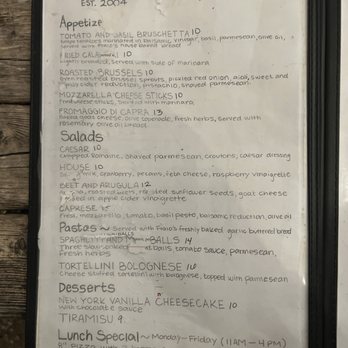 EST. 2004
Appetize
TOMATO AND BASIL BRUSCHETTA 10
tomatoes marinated in balsamic vinegar, basil, parmesean, olive oil,
served with Fiaio's house baked bread
FRIED CALAMARI 10
Lightly breaded, served with side of marinara
ROASTED BRUSSELS 10
oven roasted brussel sprouts, pickled red onion, aioli, sweet and
apple cider reduction, pistachio, shaved parmesean
MOZZARELLA CHEESE STICKS 10
Fried cheese sticks, served with marinara
FROMAGGIO DI CAPRA 13
baked goats cheese, olive tapenade, fresh herbs, served with
rosemary olive oil bread
Salads
CAESAR 10
Chopped Romaine, Shaved parmesan, croutons, caesar dressing
HOUSE 10
mix, cranberry, pecans, feta cheese, raspberry vinaigrette
BEET AND ARUGULA 12
roasted beets, roasted sunflower seeds, goat cheese
tossed in apple cider vinaigrette
CAPRESE
Fresh mozzarella, tomato, basil pesto, balsamic reduction, olive oil
Pastas ~ Served with Fiaio's freshly baked garlic buttered bread
SPAGHETTI AND BALLS 14
Three tomato sauce, parmesean,
Fresh herbs
TORTELLINI BOLOGNESE 16
Cheese stuffed tortellini with bolognese, topped with parmesean
Desserts
NEW YORK VANILLA CHEESECAKE 10
with chocolate sauce
TIRAMISU 9
Lunch Special ~ Monday - Friday (11AM - 4PM)
8" PIZZA